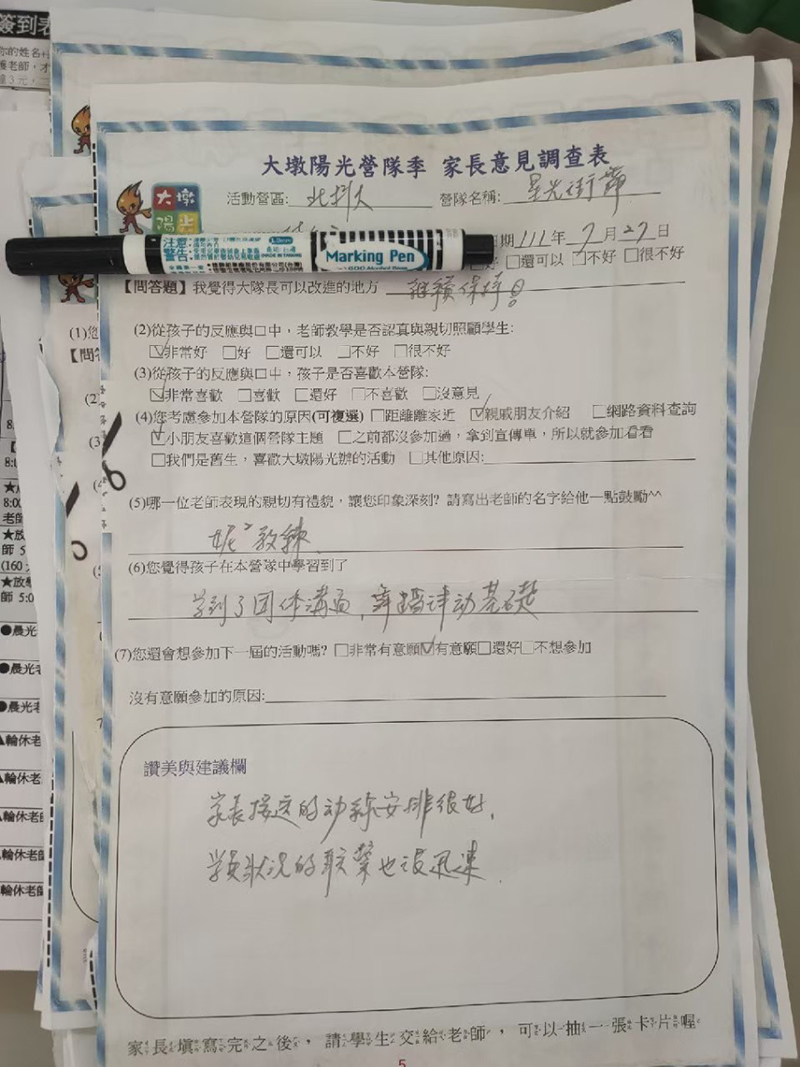 簽到表
大墩陽光營隊季 家長意見調查表
大墩
陽光
活動營區: 北科大 營隊名稱: 星光街舞
日期 111 年 7 月 27 日
注意
警告
1.0mm
MADE IN TAIWAN
Marking Pen
好 □還可以 □不好 □很不好
【問答題】我覺得大隊長可以改進的地方 繼續保持!
(2)從孩子的反應與口中，老師教學是否認真與親切照顧學生:
☑非常好 □好 □還可以 □不好 □很不好
(3)從孩子的反應與口中，孩子是否喜歡本營隊:
☑非常喜歡 □喜歡 □還好 □不喜歡 □沒意見
(4)您考慮參加本營隊的原因(可複選) □距離離家近 ☑親戚朋友介紹 □網路資料查詢
☑小朋友喜歡這個營隊主題 □之前都沒參加過，拿到宣傳單，所以就參加看看
□我們是舊生，喜歡大墩陽光辦的活動 □其他原因:
(5)哪一位老師表現的親切有禮貌，讓您印象深刻? 請寫出老師的名字給他一點鼓勵^^
妮妮教練
(6)您覺得孩子在本營隊中學習到了
學到了团体溝通，舞蹈律动基礎
(7)您還會想參加下一屆的活動嗎? □非常有意願☑有意願□還好□不想參加
沒有意願參加的原因:
讚美與建議欄
家長接送的动線安排很好，
學員狀況的联繫也很迅速
家長填寫完之後，請學生交給老師，可以抽一張卡片喔
5